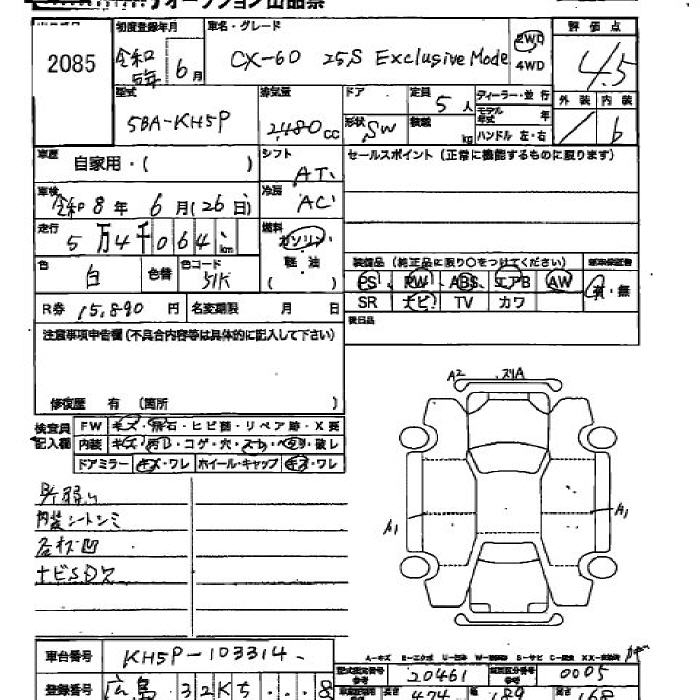 オークション出品票
2085
初度登録年月
令和5年 6月
車名・グレード
CX-60 25S Exclusive Mode
2WD
4WD
評価点
4.5
外装 内装
b
型式
5BA-KH5P
排気量
2,480 cc
ドア
形状 SW
定員 5 人
積載 kg
ディーラー・並行
モデル年式 年
ハンドル 左・右
車歴
自家用・( )
シフト
AT
セールスポイント (正常に機能するものに限ります)
車検
令和 8年 6月(26日)
冷房
AC
走行
5万4千064 km
燃料
ガソリン
軽・油
( )
色
白
色替
色コード
51K
装備品 (純正品に限り○をつけてください)
PS PW ABS エアB AW
SR ナビ TV カワ
新車保証書
有・無
R券 15,890 円
名変期限 月 日
後日品
注意事項申告欄(不具合内容等は具体的に記入して下さい)
修復歴 有 (箇所 )
検査員記入欄
FW キズ・飛石・ヒビ割・リペア跡・X要
内装 キズ・汚レ・コゲ・穴・スレ・ヘタリ・破レ
ドアミラー キズ・ワレ ホイール・キャップ キズ・ワレ
内装シートシミ
各杉凹
ナビSD欠
A2 スリA
A1 A1
車台番号 KH5P-103314
A-キズ E-エクボ U-凹ミ W-補修跡 S-サビ C-腐食 XX-交換済
型式指定番号 20461
類別区分番号 0005
登録番号 広島 32K5...8
長さ 474 幅 189 高さ 168